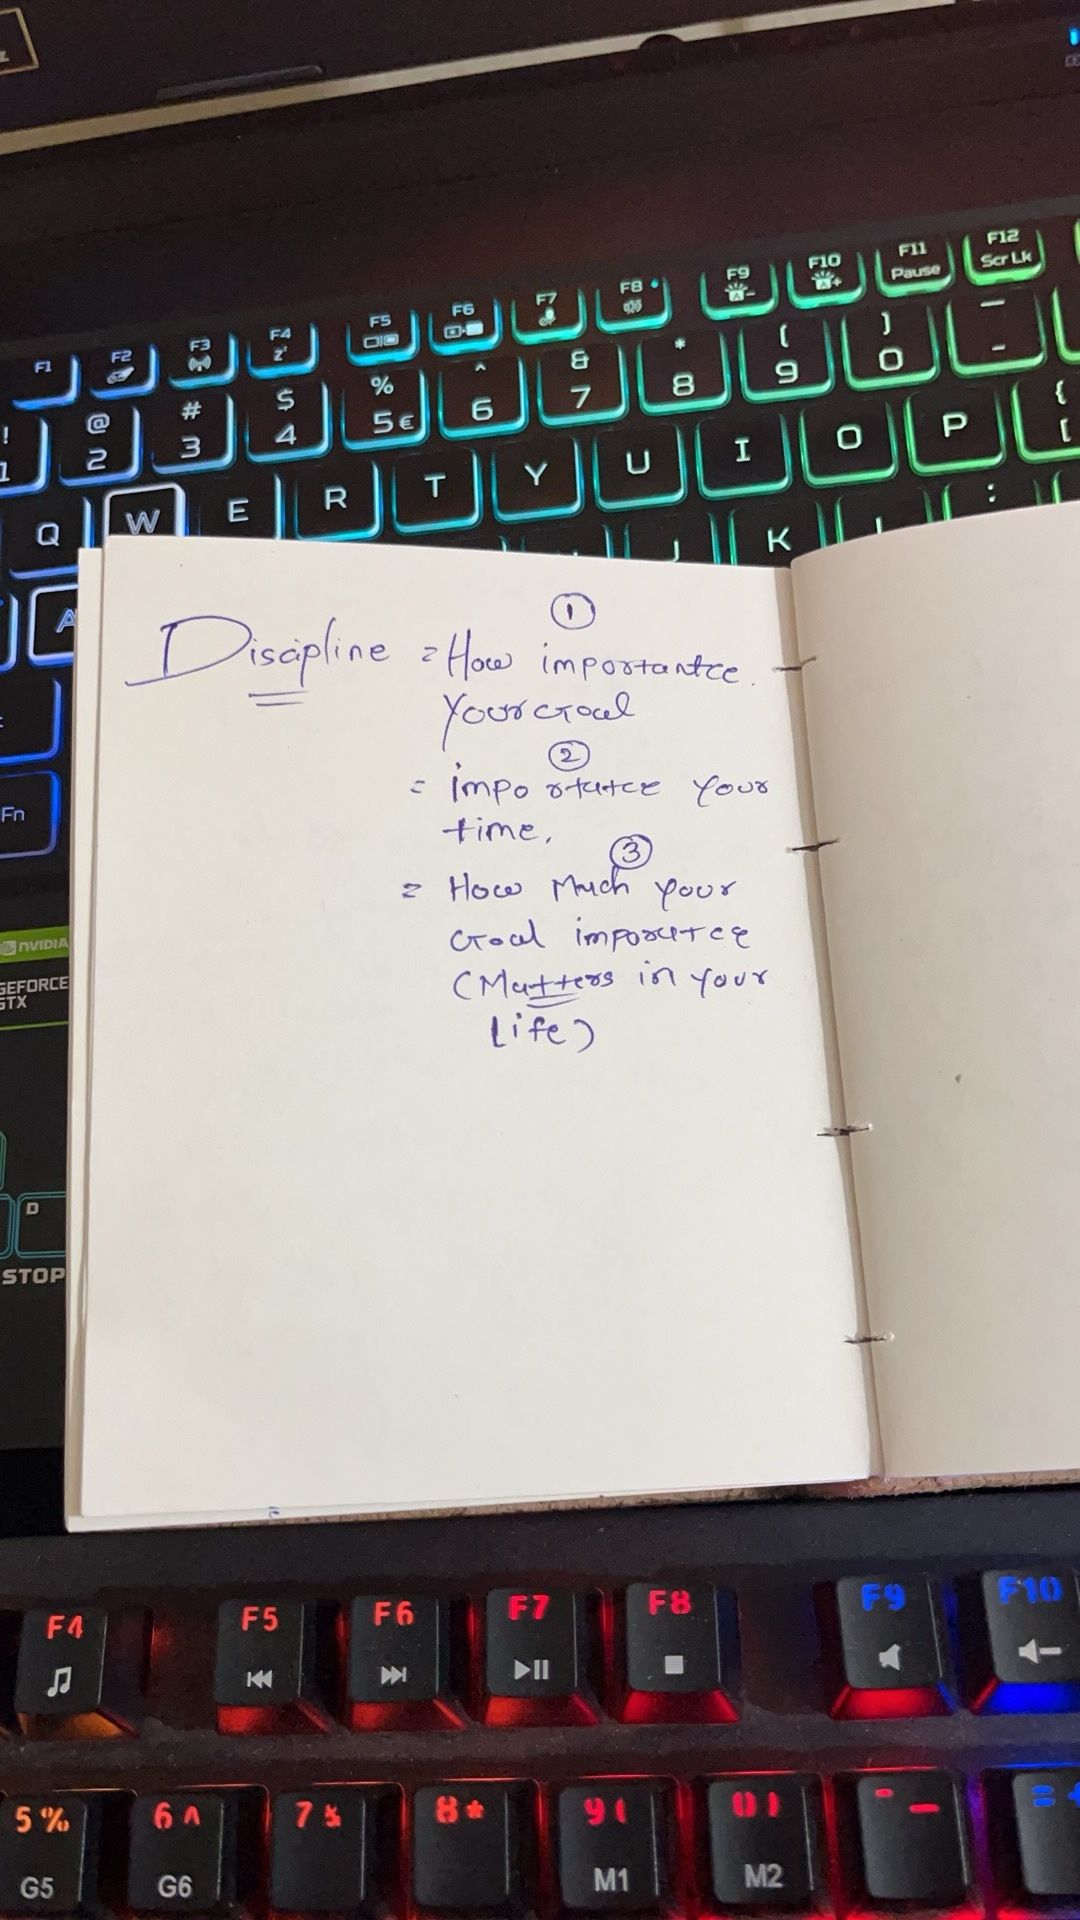 F1 F2 F3 F4 z' F5 F6 F7 F8 F9 F10 F11 Pause F12 Scr Lk
! 1 @ 2 # 3 $ 4 % 5 € ^ 6 & 7 * 8 ( 9 ) 0 _ -
Q W E R T Y U I O P { [
A J K L :
Fn
NVIDIA
GEFORCE
GTX
D
STOP
①
Discipline = How importantce.
Your Goal
②
= importatce Your
time.
③
= How Much your
Goal imporatce
(Matters in your
Life)
F4 F5 F6 F7 F8 F9 F10
5 % 6 ^ 7 & 8 * 9 ( 0 ) - _ = +
G5 G6 M1 M2